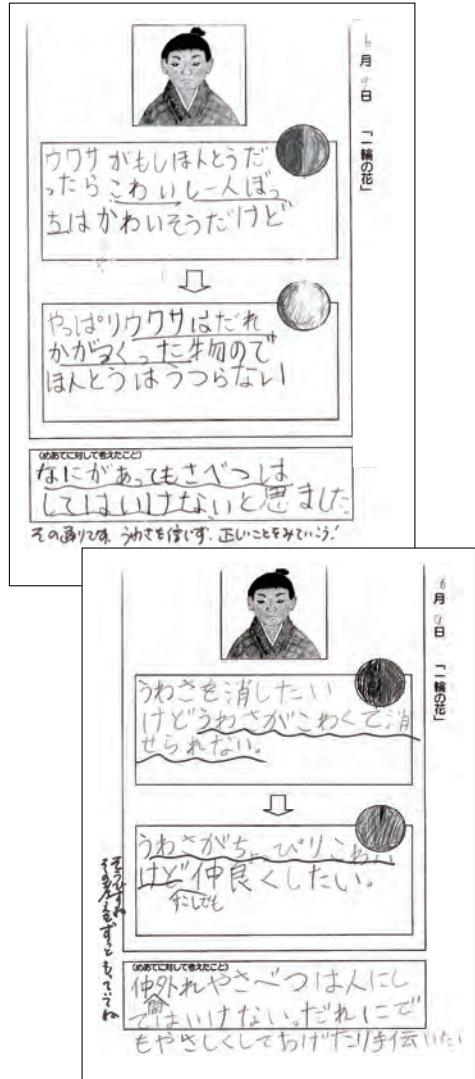 6月9日 「一輪の花」
ウワサがもしほんとうだ
ったらこわいし一人ぼっ
ちはかわいそうだけど
やっぱりウワサはだれ
かがつくった物ので
ほんとうはうつらない
(めあてに対して考えたこと)
なにがあってもさべつは
してはいけないと思ました。
その通りです。うわさを信じず、正しいことをみていこう!
6月9日 「一輪の花」
うわさを消したい
けどうわさがこわくて消
せられない。
うわさがちょぴりこわい
けど仲良くしたい。
すこしでも
そうですね
その考えをずっともっていてね
(めあてに対して考えたこと)
仲間外れやさべつは人にし
てはいけない。だれにで
もやさしくしてあげたり手伝いたい